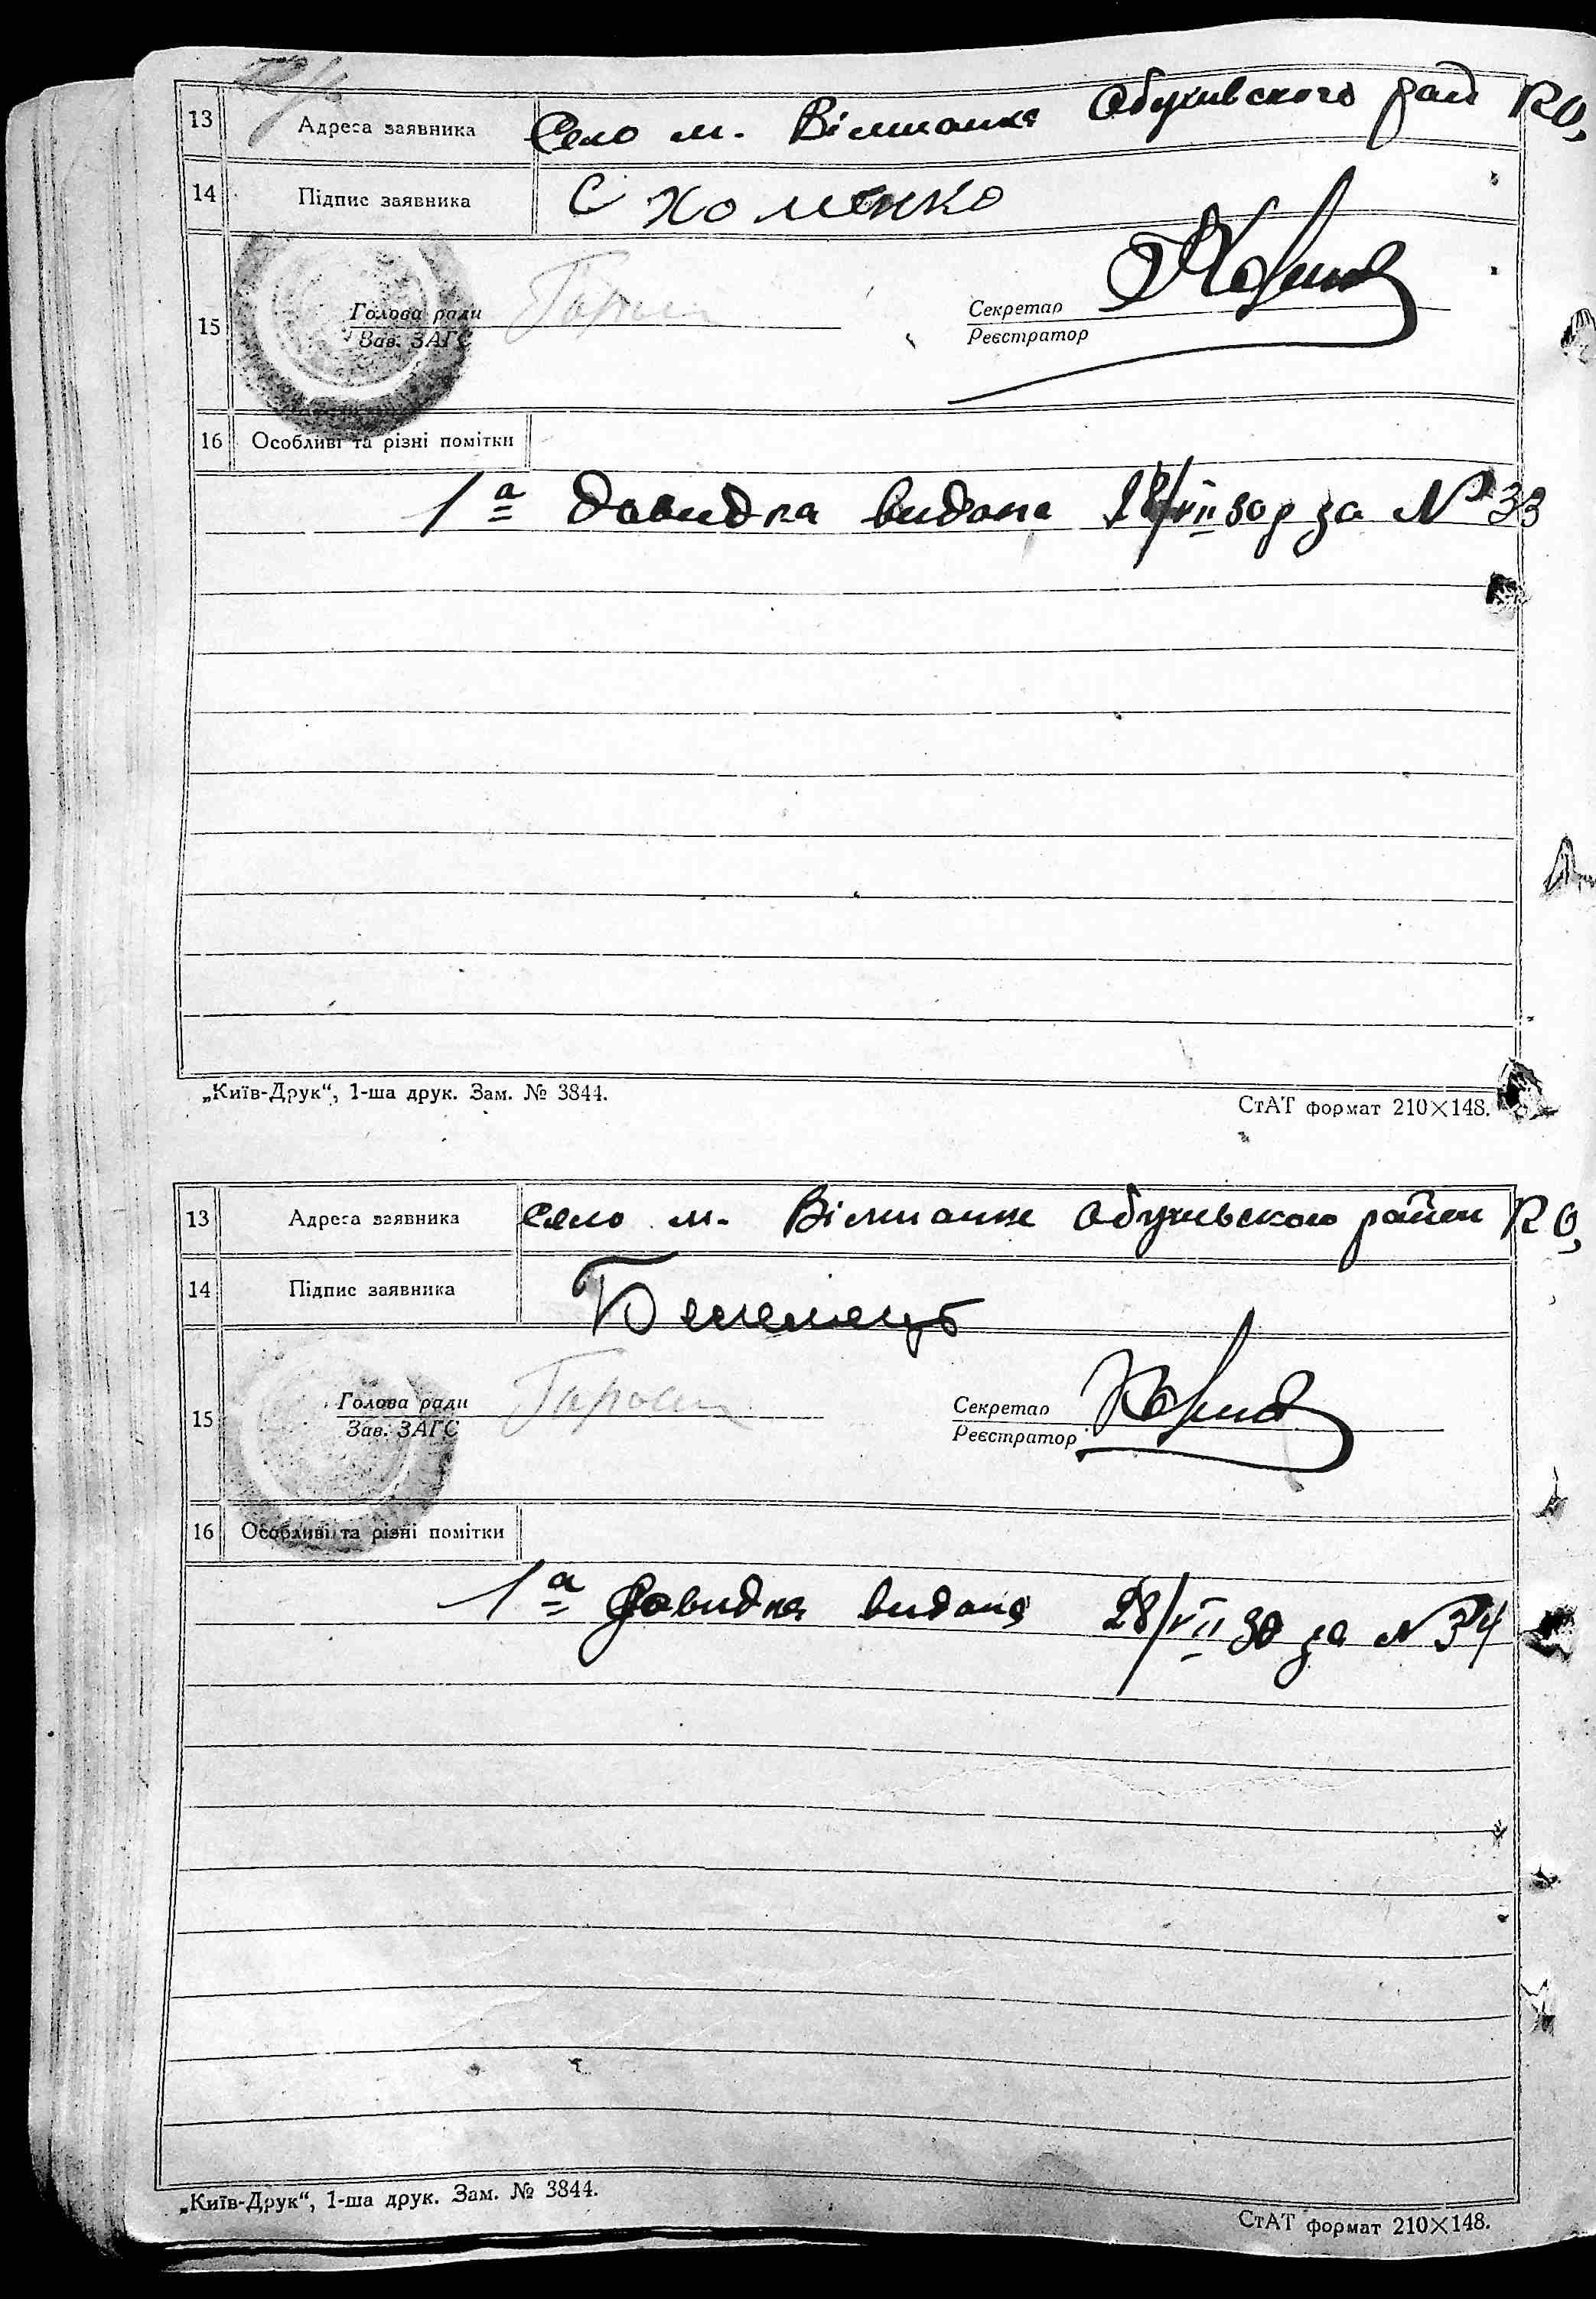 13 Адреса заявника Село м. Вільшанка Обухивского рай КО,
14 Підпис заявника С Хоменко
15 Голова ради Секретар
Зав. ЗАГС Реєстратор
16 Особливі та різні помітки
1а довидка видана 28/VII 30 р за № 33
„Київ-Друк“, 1-ша друк. Зам. № 3844. СтАТ формат 210×148.
13 Адреса заявника Село м. Вільшанка Обухивского район КО,
14 Підпис заявника
15 Голова ради Секретар
Зав. ЗАГС Реєстратор
16 Особливі та різні помітки
1а Довидка видана 28/VII 30 за № 34
„Київ-Друк“, 1-ша друк. Зам. № 3844. СтАТ формат 210×148.